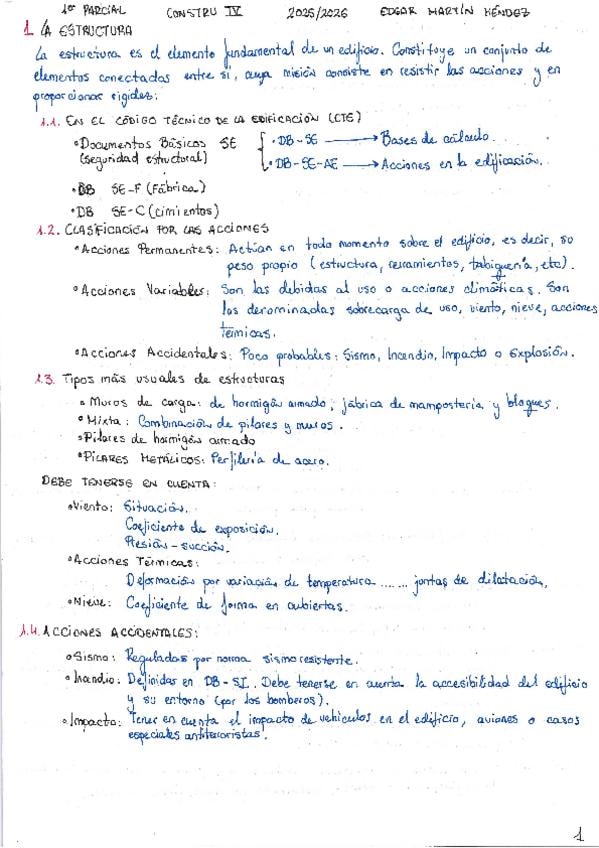 1er PARCIAL CONSTRU IV 2025/2026 EDGAR MARTÍN MÉNDEZ
1. LA ESTRUCTURA
La estructura es el elemento fundamental de un edificio. Constituye un conjunto de
elementos conectados entre sí, cuya misión consiste en resistir las acciones y en
proporcionar rigidez.
1.1. EN EL CÓDIGO TÉCNICO DE LA EDIFICACIÓN (CTE)
• Documentos Básicos SE { • DB-SE → Bases de cálculo.
(seguridad estructural) • DB-SE-AE → Acciones en la edificación.
• DB SE-F (Fábrica)
• DB SE-C (cimientos)
1.2. CLASIFICACIÓN POR LAS ACCIONES
• Acciones Permanentes: Actúan en todo momento sobre el edificio, es decir, su
peso propio (estructura, cerramientos, tabiquería, etc).
• Acciones Variables: Son las debidas al uso o acciones climáticas. Son
las denominadas sobrecarga de uso, viento, nieve, acciones
térmicas.
• Acciones Accidentales: Poco probables: Sismo, Incendio, Impacto o Explosión.
1.3. Tipos más usuales de estructuras
• Muros de carga: de hormigón armado, fábrica de mampostería y bloques.
• Mixta: Combinación de pilares y muros.
• Pilares de hormigón armado
• PILARES METÁLICOS: Perfilería de acero.
DEBE TENERSE EN CUENTA:
• Viento: Situación.
Coeficiente de exposición.
Presión-succión.
• Acciones Térmicas:
Deformación por variación de temperatura ...... juntas de dilatación.
• Nieve: Coeficiente de forma en cubiertas.
1.4. ACCIONES ACCIDENTALES:
• Sismo: Reguladas por norma sismoresistente.
• Incendio: Definidas en DB-SI. Debe tenerse en cuenta la accesibilidad del edificio
y su entorno (por los bomberos).
• Impacto: Tener en cuenta el impacto de vehículos en el edificio, aviones o casos
especiales antiterroristas.
1